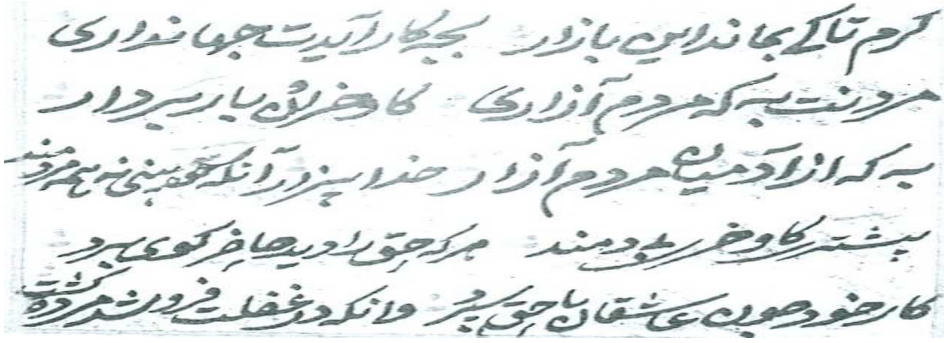 گرم تا کی بماند این بازار بچه کار آیدت جهانداری
مردنت به که مردم آزاری گاو خران بار بردار
به که از آدمیان مردم آزار خدا پندار آنکه بینی نه همه مردند
بیشتر گاو و خر بی دمند هر که حق را دید جا خر گوی ببرد
کار خود چون عاشقان با حق سپرد وانکه در غفلت فرو شد مرده گشت